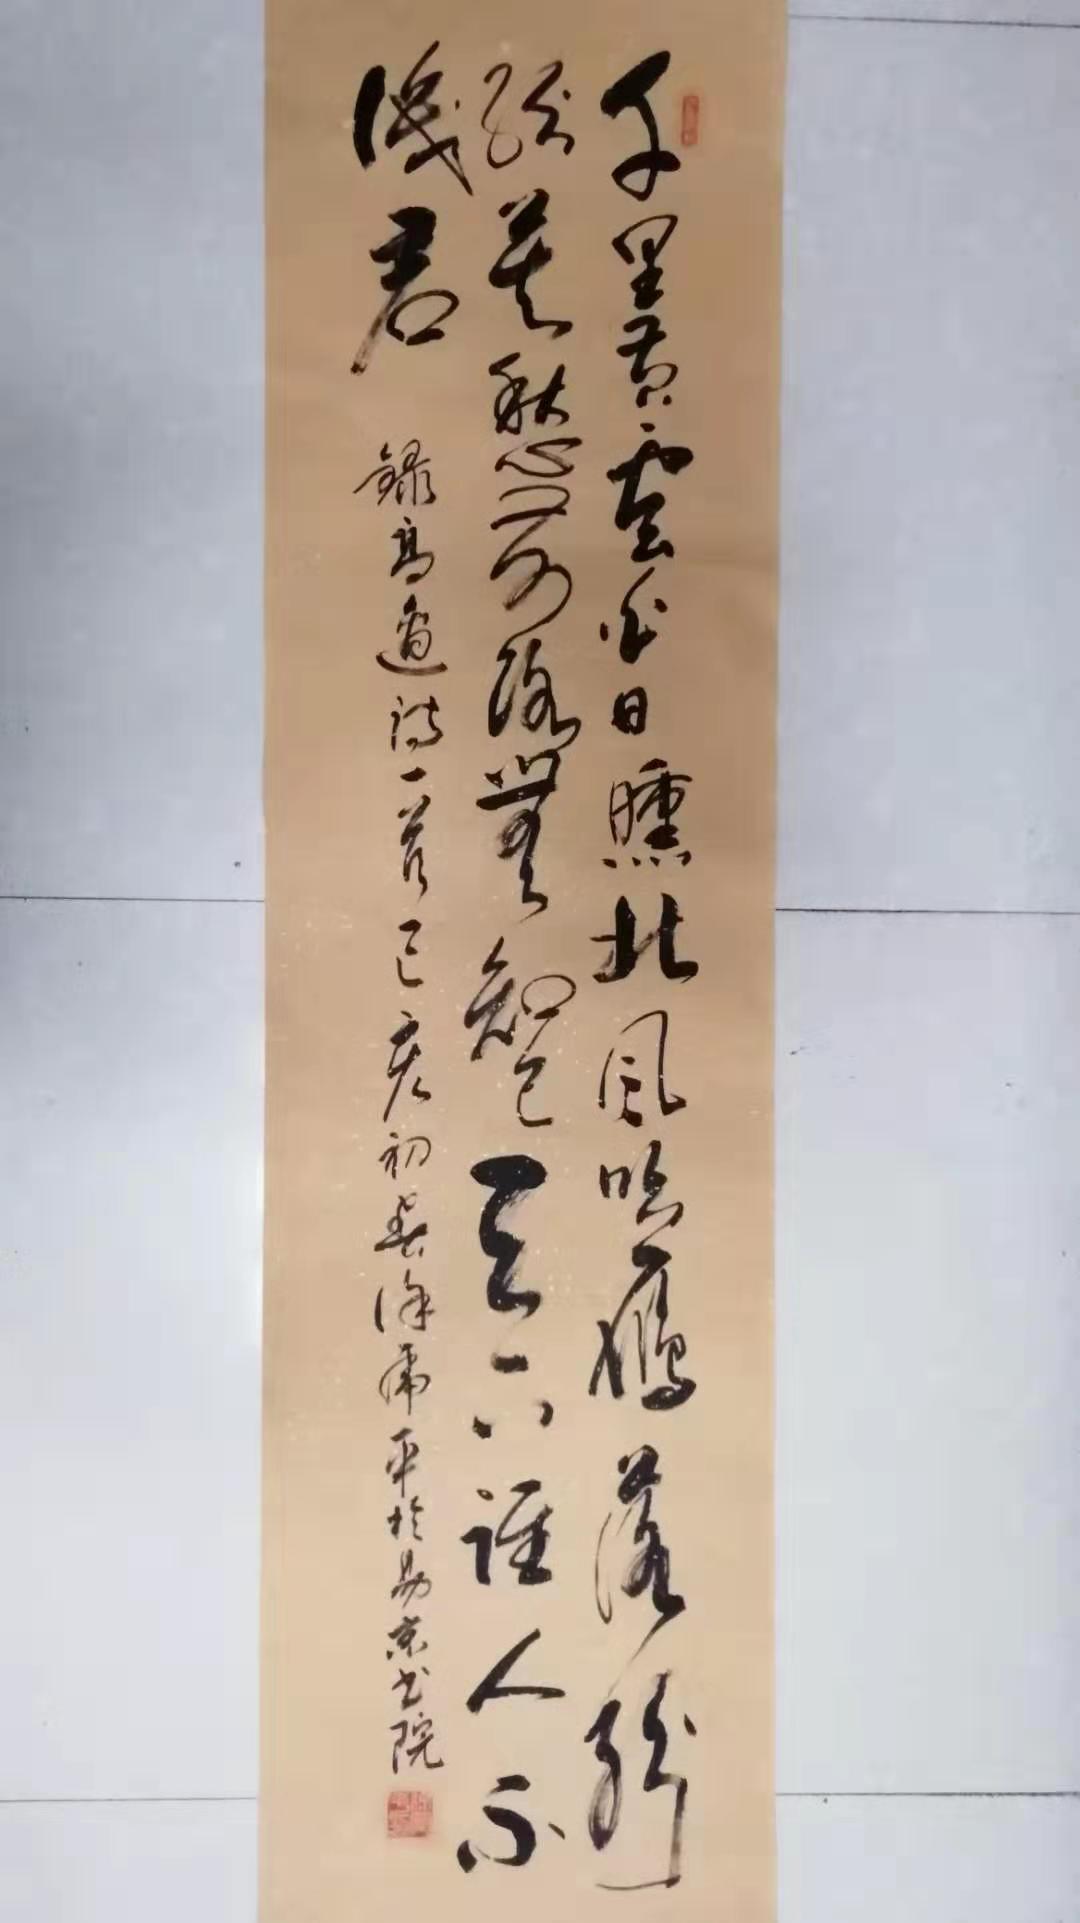 千里黃雲白日曛北風吹鴈落紛
紛莫愁前路無知己天下誰人不
識君 錄高適詩一首己亥初春徐平於易京书院